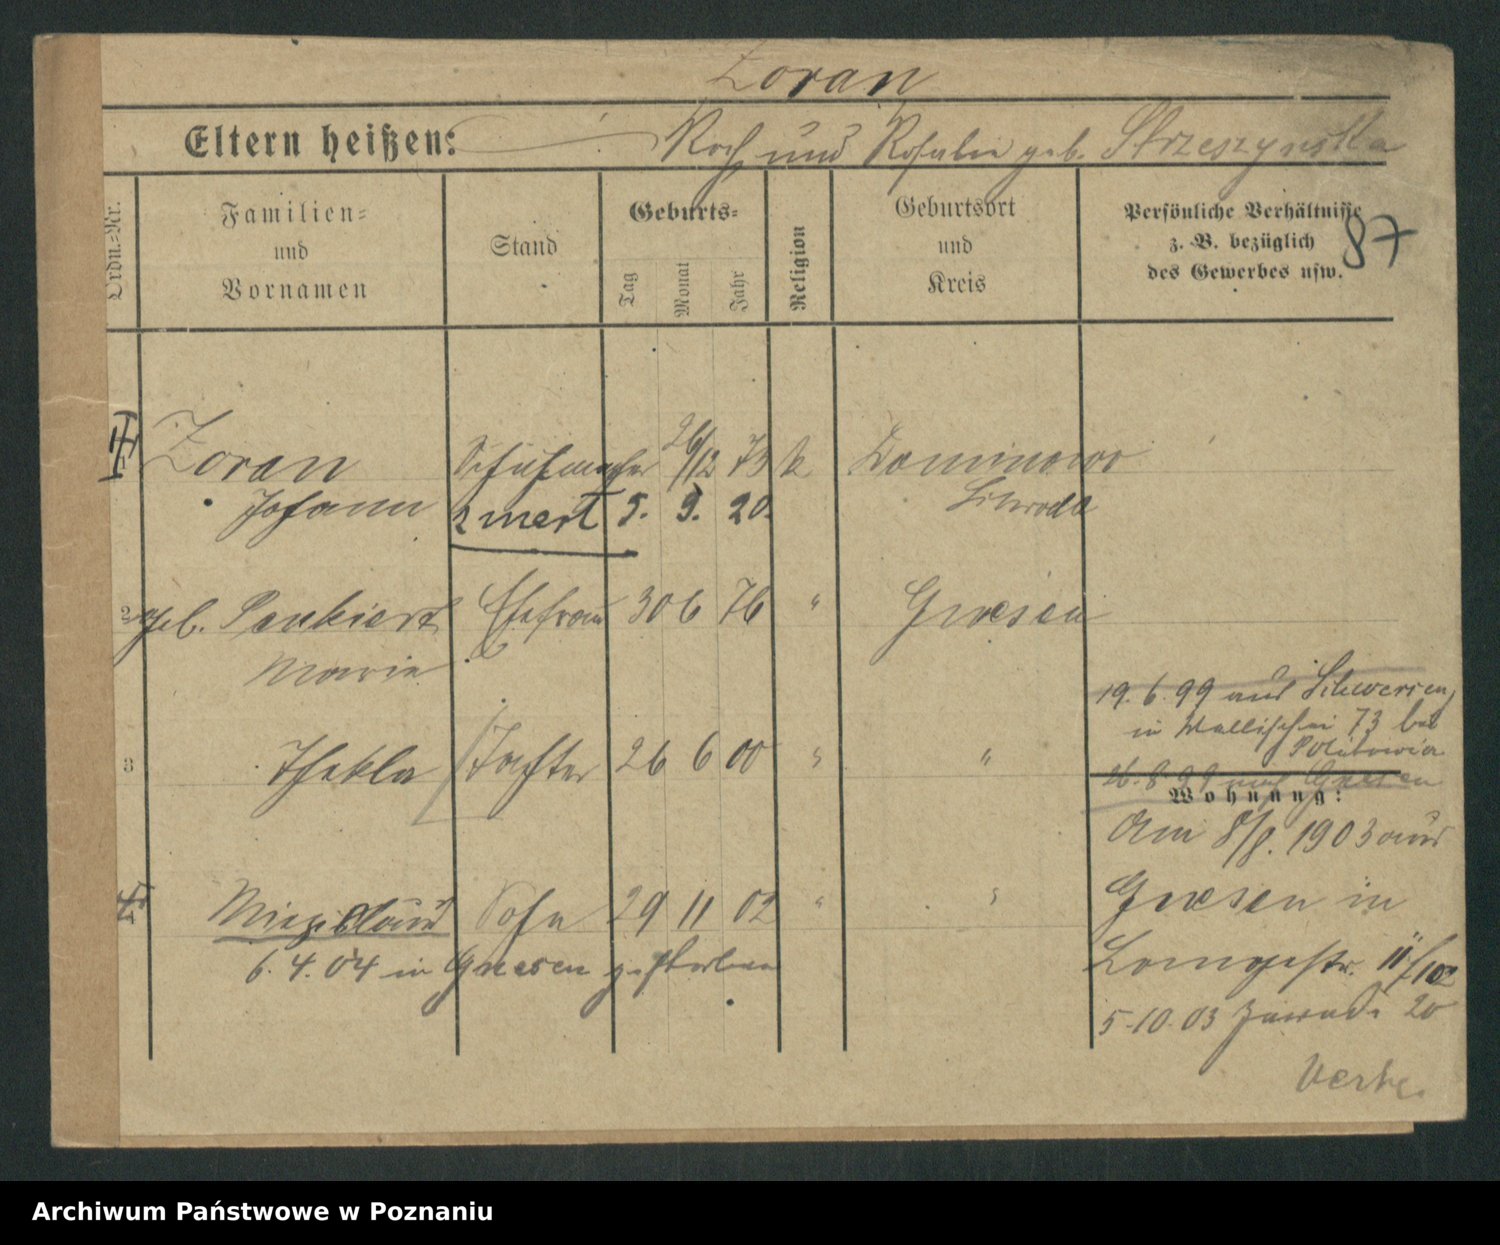 Zoran
Eltern heißen: Roch und Rosalie geb. Strzeszynska
Ordn.-Nr.
Familien-
und
Vornamen
Stand
Geburts-
Tag
Monat
Jahr
Religion
Geburtsort
und
Kreis
Persönliche Verhältnisse
z. B. bezüglich
des Gewerbes usw.
87
Zoran Schuhmacher 26/12 73 k Dominowo
Johann zmarł 5. 9. 20. Schroda
2 geb. Penkiert Ehefrau 30 6 76 " Gnesen
Marie
19. 6. 99 aus Schwersenz
in Wallischei 73 bei
3 Thekla Tochter 26 6 00 " "
26. 8. 99 nach Gnesen
Wohnung:
Am 8/8. 1903 aus
Miezislaus Sohn 29 11 02 " "
Gnesen in
6. 4. 04 in Gnesen gestorben
5-10.03 Zawade 20